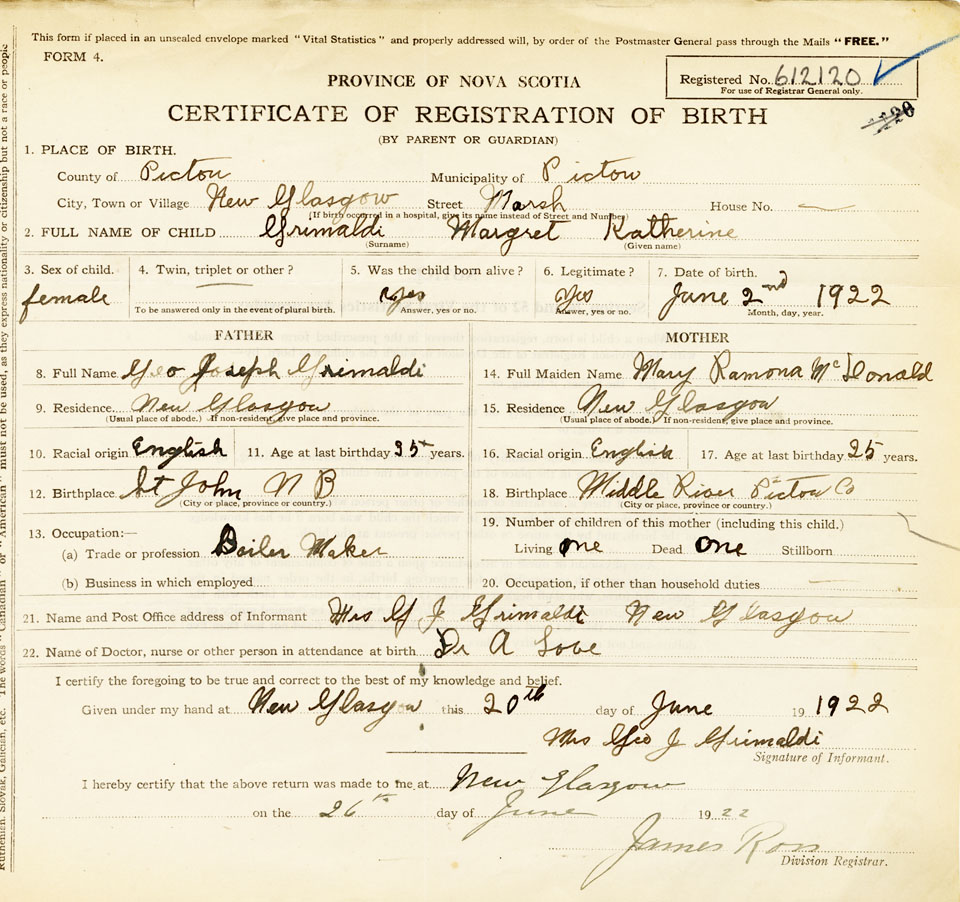 This form if placed in an unsealed envelope marked "Vital Statistics" and properly addressed will, by order of the Postmaster General pass through the Mails "FREE."
FORM 4.
Registered No. 612120
For use of Registrar General only.
PROVINCE OF NOVA SCOTIA
CERTIFICATE OF REGISTRATION OF BIRTH
(BY PARENT OR GUARDIAN)
1. PLACE OF BIRTH.
County of Pictou Municipality of Pictou
City, Town or Village New Glasgow Street Marsh House No. —
(If birth occurred in a hospital, give its name instead of Street and Number)
2. FULL NAME OF CHILD Grimaldi Margret Katherine
(Surname) (Given name)
3. Sex of child. 4. Twin, triplet or other? 5. Was the child born alive? 6. Legitimate? 7. Date of birth.
female — Yes Yes June 2nd 1922
To be answered only in the event of plural birth. Answer, yes or no. Answer, yes or no. Month, day, year.
FATHER MOTHER
8. Full Name Geo Joseph Grimaldi 14. Full Maiden Name Mary Ramona McDonald
9. Residence New Glasgow 15. Residence New Glasgow
(Usual place of abode.) If non-resident, give place and province. (Usual place of abode.) If non-resident, give place and province.
10. Racial origin English 11. Age at last birthday 35 years. 16. Racial origin English 17. Age at last birthday 25 years.
12. Birthplace St John N B 18. Birthplace Middle River Pictou Co
(City or place, province or country.) (City or place, province or country.)
13. Occupation:— 19. Number of children of this mother (including this child.)
(a) Trade or profession Boiler Maker Living one Dead one Stillborn
(b) Business in which employed 20. Occupation, if other than household duties —
21. Name and Post Office address of Informant Mrs G J Grimaldi New Glasgow
22. Name of Doctor, nurse or other person in attendance at birth Dr A Love
I certify the foregoing to be true and correct to the best of my knowledge and belief.
Given under my hand at New Glasgow this 20th day of June 19 1922
Mrs Geo J Grimaldi
Signature of Informant.
I hereby certify that the above return was made to me at New Glasgow
on the 26th day of June 1922
James Ross
Division Registrar.
must not be used, as they express nationality or citizenship but not a race or people
Ruthenian, Slovak, Galician, etc. The words "Canadian" or "American"